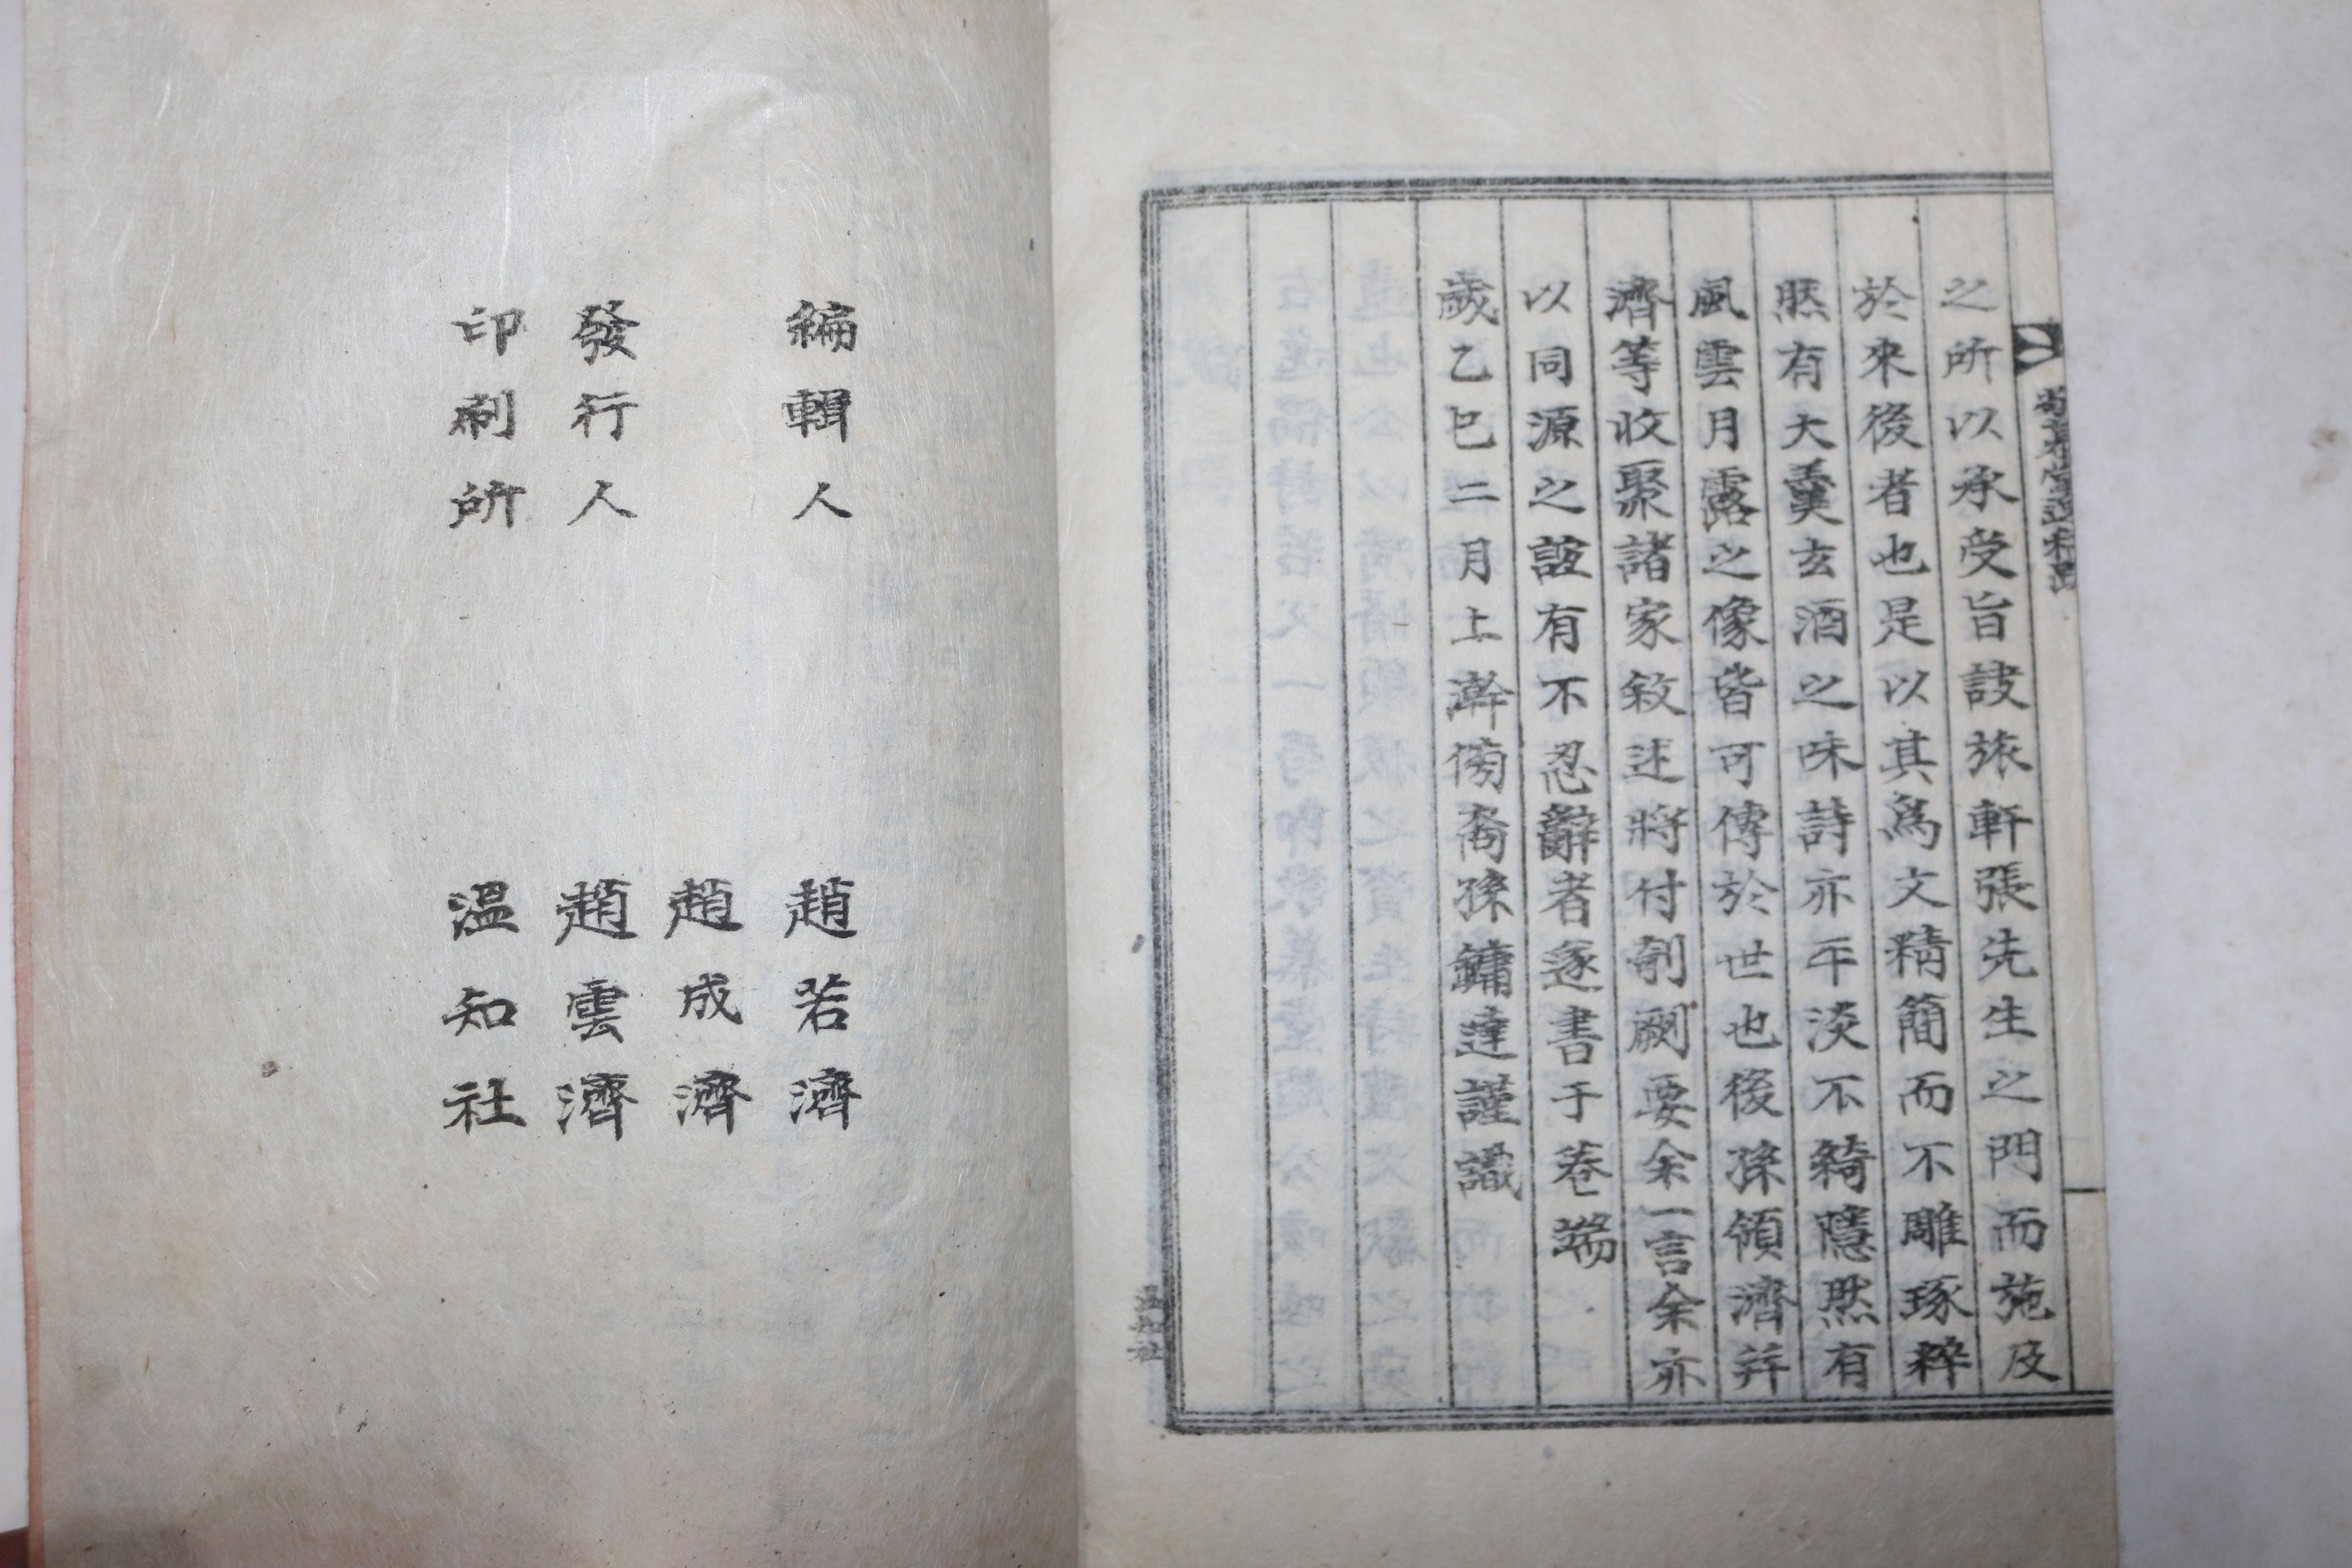 之所以承受旨訣旅軒張先生之門而施及
於來後者也是以其爲文精簡而不雕琢粹
然有大羹玄酒之味詩亦平淡不綺隱然有
風雲月露之像皆可傳於世也後孫領濟幷
濟等收聚諸家敘述將付剞劂要余一言余亦
以同源之誼有不忍辭者遂書于卷端
歲乙巳二月上澣傍裔孫鏞達謹識
溫知社
編輯人 趙若濟
趙成濟
發行人 趙雲濟
印刷所 溫知社